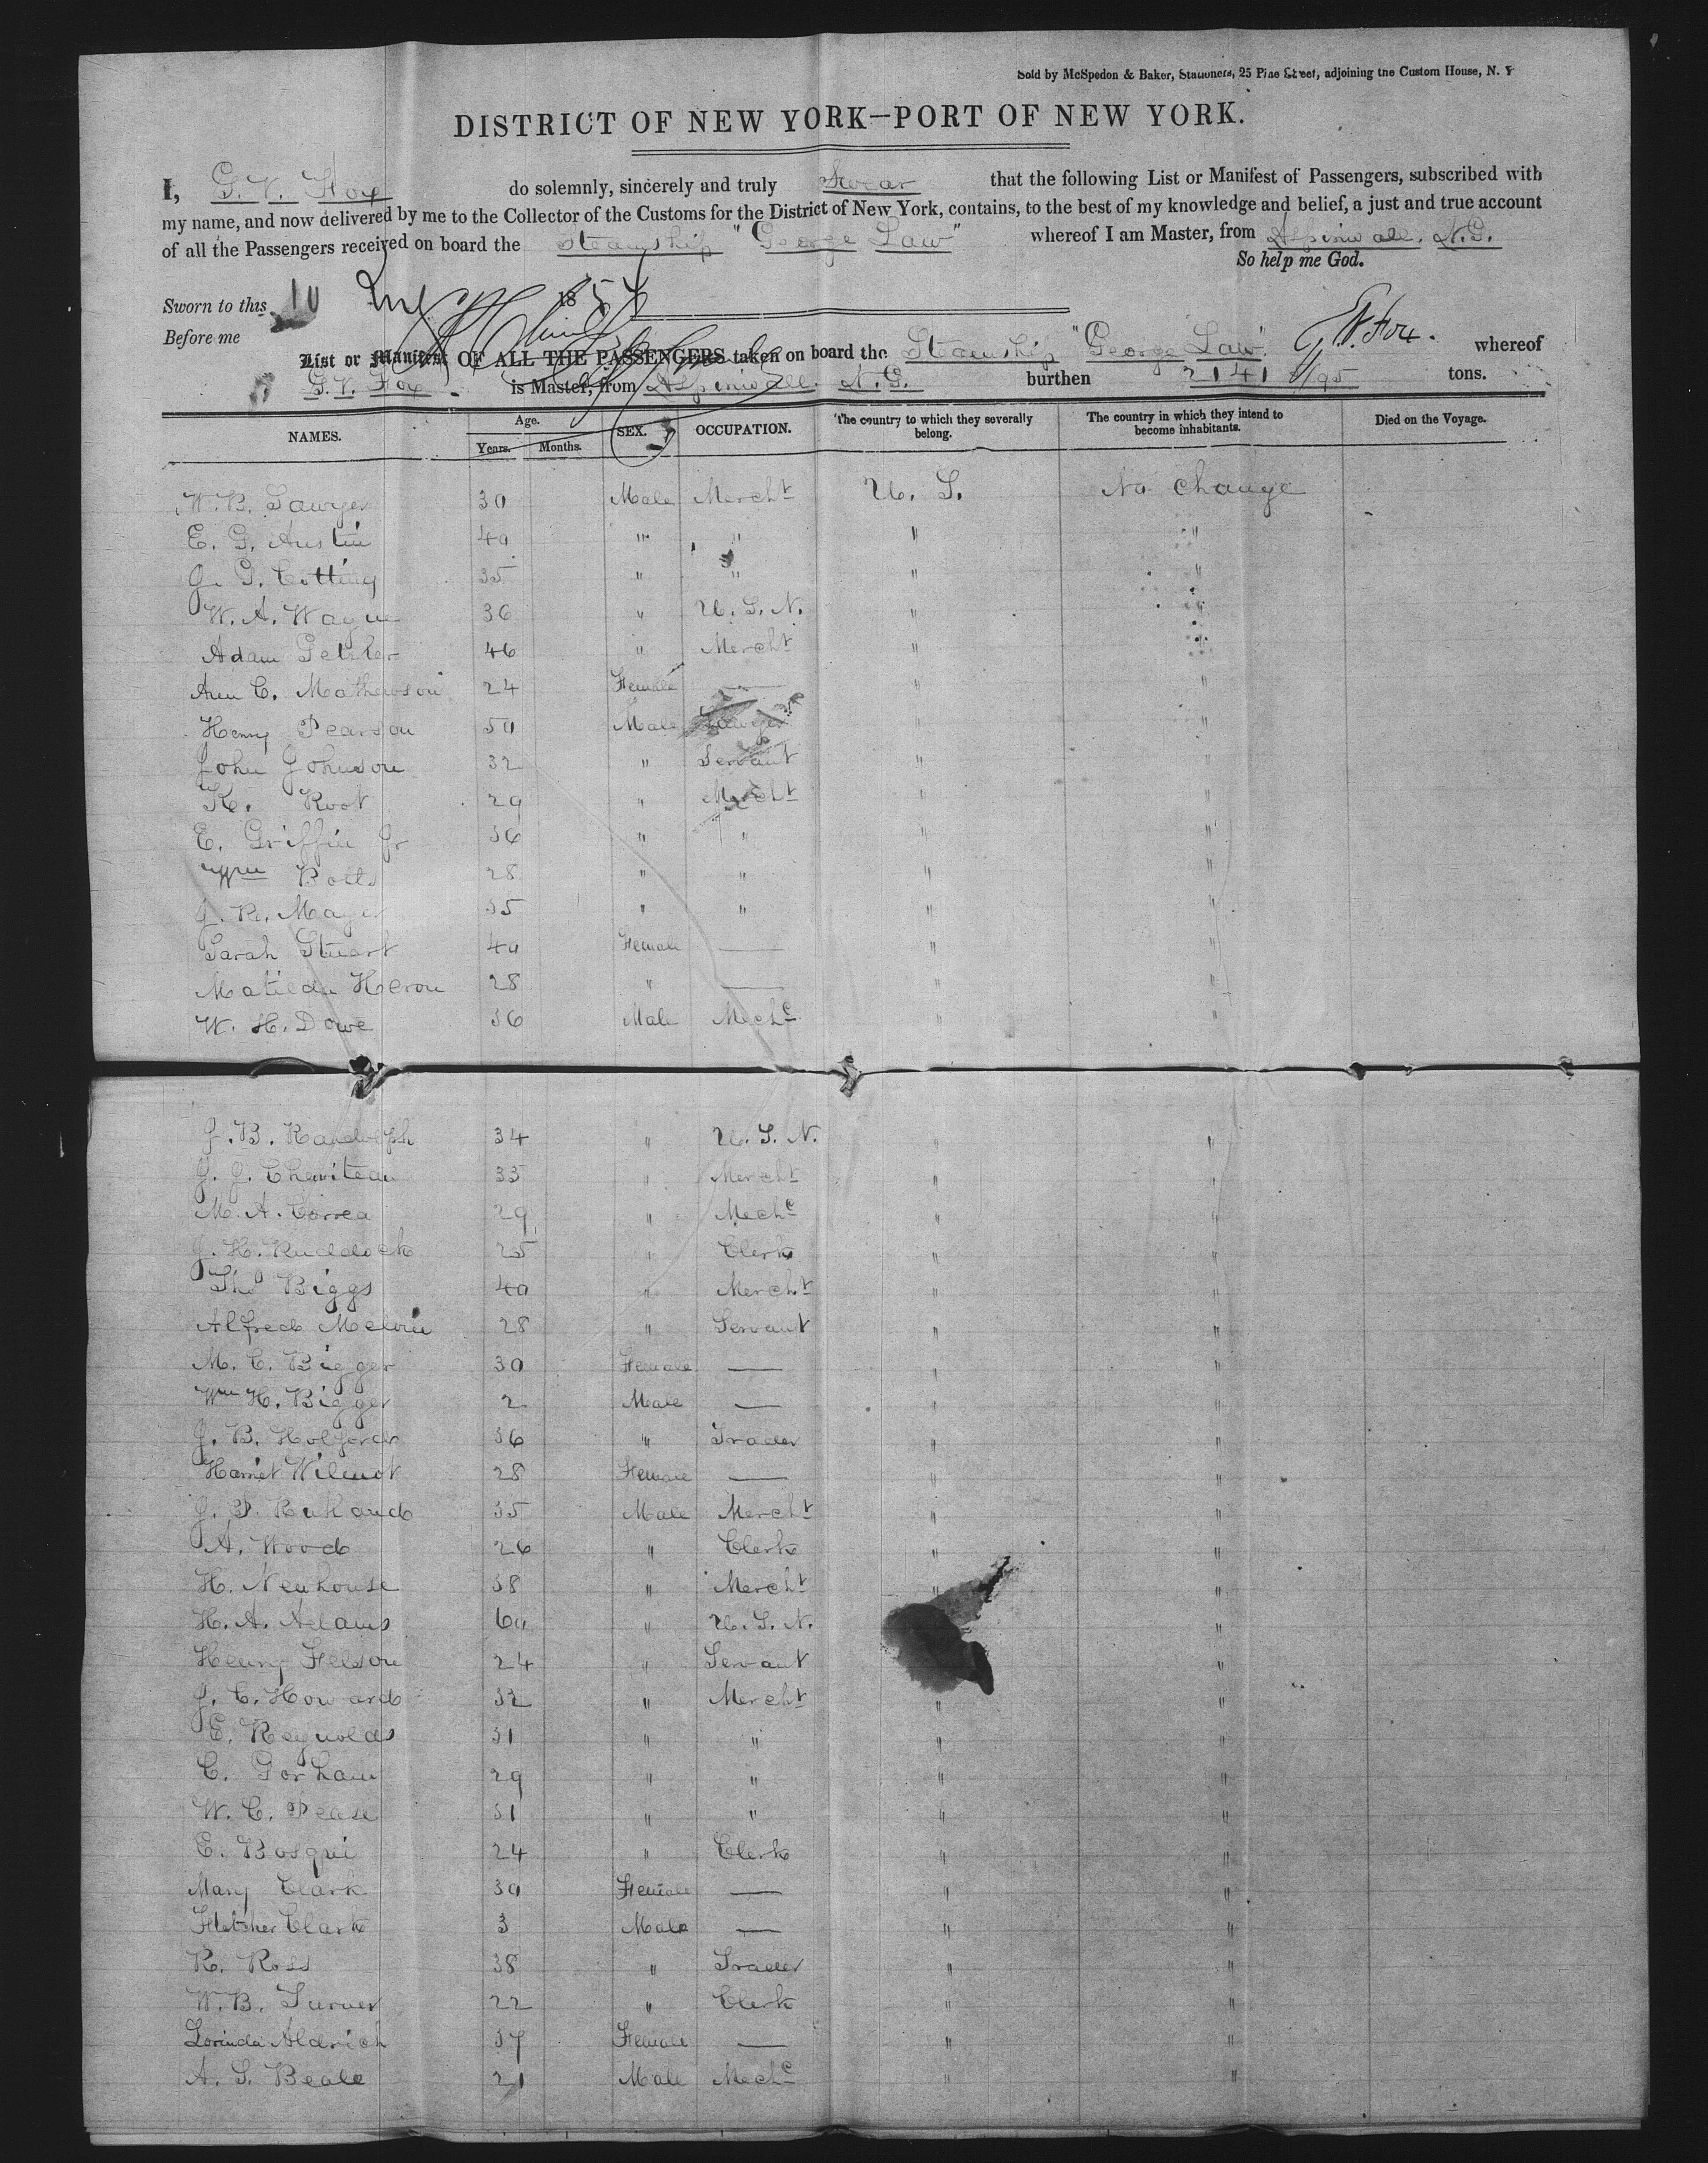 Sold by McSpedon & Baker, Stationers, 25 Pine Street, adjoining the Custom House, N. Y
DISTRICT OF NEW YORK—PORT OF NEW YORK.
I, G. V. Fox do solemnly, sincerely and truly Swear that the following List or Manifest of Passengers, subscribed with
my name, and now delivered by me to the Collector of the Customs for the District of New York, contains, to the best of my knowledge and belief, a just and true account
of all the Passengers received on board the Steamship "George Law" whereof I am Master, from Aspinwall. N.G.
So help me God.
Sworn to this 10 1854
Before me G. V. Fox.
List or Manifest OF ALL THE PASSENGERS taken on board the Steamship "George Law" whereof
G. V. Fox is Master, from Aspinwall. N. G. burthen 2141 /95 tons.
NAMES. Age. Years. Months. SEX. OCCUPATION. The country to which they severally belong. The country in which they intend to become inhabitants. Died on the Voyage.
W. B. Sawyer 30 Male Mercht U. S. No change
E. G. Austin 40 " " " "
J. G. Cotting 35 " " " "
W. A. Wayne 36 " U. S. N. " "
Adam 46 " Mercht " "
Ann C. Mathewson 24 Female — " "
Henry Pearson 50 Male Lawyer " "
John Johnson 32 " Servant " "
R. Root 29 " Mercht " "
E. Griffin Jr 36 " " " "
Wm Botts 28 " " " "
J. R. Mayer 35 " " " "
Sarah Stuart 40 Female — " "
Matilda Heron 28 " — " "
W. H. Dowe 36 Male Mechc " "
J. B. Randolph 34 " U. S. N. " "
J. J. Cheviteau 33 " Mercht " "
M. A. Correa 29 " Mechc " "
J. H. Ruddock 25 " Clerk " "
Tho Biggs 40 " Mercht " "
Alfred Melvin 28 " Servant " "
M. C. Bigger 30 Female — " "
Wm H. Bigger 2 Male — " "
J. B. Holford 36 " Trader " "
Harriet Wilmot 28 Female — " "
J. P. Ruhland 35 Male Mercht " "
A. Wood 26 " Clerk " "
H. Newhouse 38 " Mercht " "
H. A. Adams 60 " U. S. N. "
Henry Felson 24 " Servant "
J. C. Howard 32 " Mercht " "
E. Reynolds 31 " " " "
C. Gorham 29 " " " "
W. C. Pease 31 " " " "
E. Bosqui 24 " Clerk " "
Mary Clark 30 Female — " "
Fletcher Clark 3 Male — " "
R. Ross 38 " Trader " "
W. B. Turner 22 " Clerk " "
Lorinda Aldrich 37 Female — " "
A. S. Beale 21 Male Mechc " "